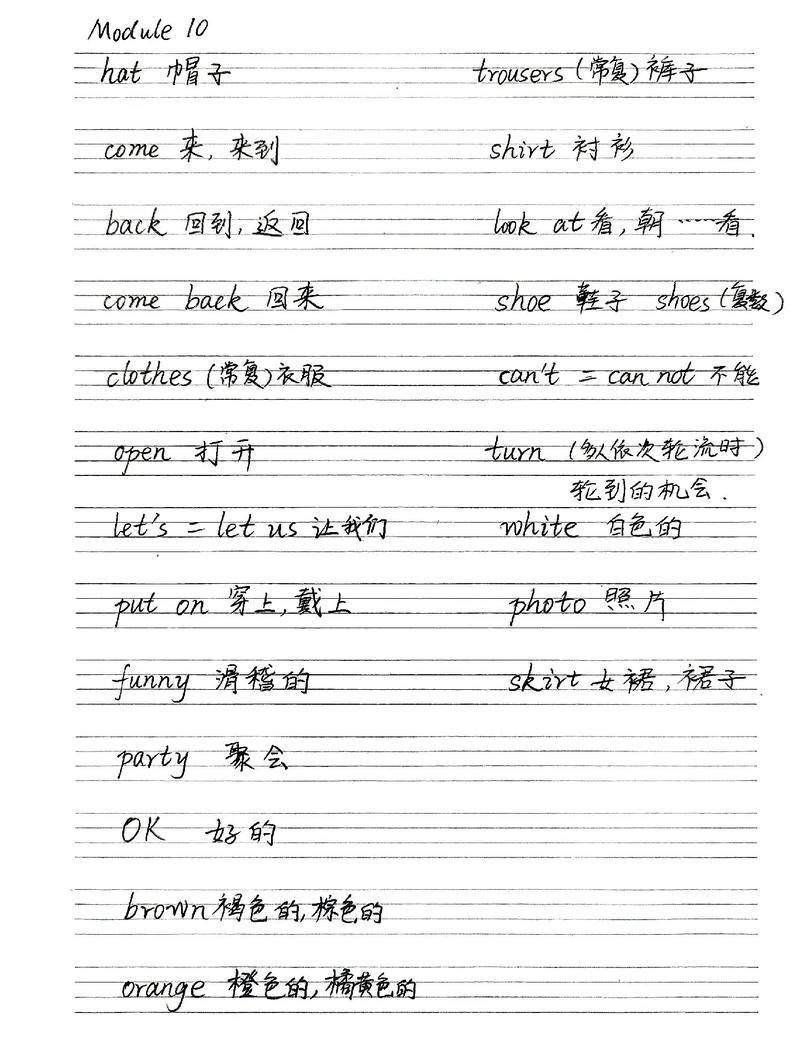 Module 10
hat 帽子
trousers (常复) 裤子
come 来, 来到
shirt 衬衫
back 回到, 返回
look at 看, 朝……看.
come back 回来
shoe 鞋子 shoes (复数)
clothes (常复) 衣服
can't = can not 不能
open 打开
turn (多人依次轮流时)
轮到的机会.
let's = let us 让我们
white 白色的
put on 穿上, 戴上
photo 照片
funny 滑稽的
skirt 女裙, 裙子
party 聚会
OK 好的
brown 褐色的, 棕色的
orange 橙色的, 橘黄色的